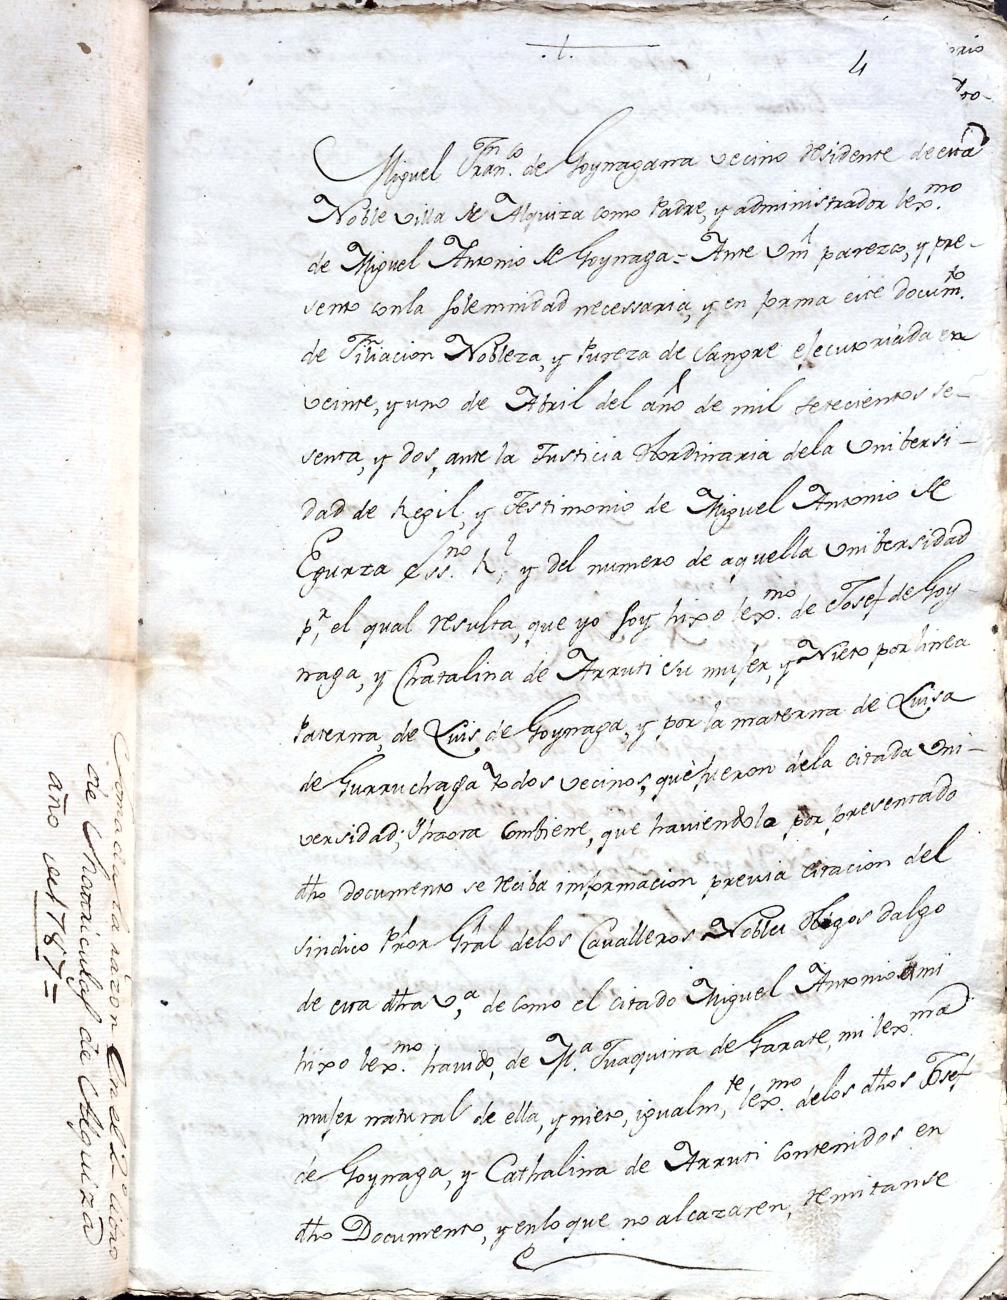 .t.
4
Miguel Fran.co de Goynagarra vecino residente de esta
Noble villa de Alquiza como Padre, y administrador lex.mo
de Miguel Antonio de Goynaga = Ante Vm parezco, y pre-
sento con la solemnidad necessaria, y en forma este docum.to
de Filiacion Nobleza, y Pureza de sangre ejecutoriada en
veinte, y uno de Abril del año de mil setecientos se-
senta, y dos, ante la Justicia Hordinaria dela Unibersi-
dad de Regil, y Testimonio de Miguel Antonio de
Egurza Ess.no R.l, y del numero de aquella Unibersidad
p.r el qual resulta, que yo soy hixo lex.mo de Josef de Goy-
naga, y Chatalina de Arruti su mujer, y Nieto por linea
Paterna, de Luis de Goynaga, y por la materna de Luisa
de Gurruchaga todos vecinos, que fueron dela citada Uni-
versidad; Y haora combiene, que haviendola por presentado
dho documento se reciba informacion previa citacion del
sindico Pror Gral delos Cavalleros Nobles Hijos dalgo
de esta dha V.a, de como el citado Miguel Antonio es mi
hixo lex.mo havido, de M.a Juaquina de Garate, mi lex.ma
mujer natural de ella, y nieto, igualm.te lex.mo delos dhos Josef
de Goynaga, y Cathalina de Arruti contenidos en
dho Documento, y enlo que no alcazaren, remitanse
Tomada la razon En el L.o
de Matriculas de Alquiza
año de 1787=